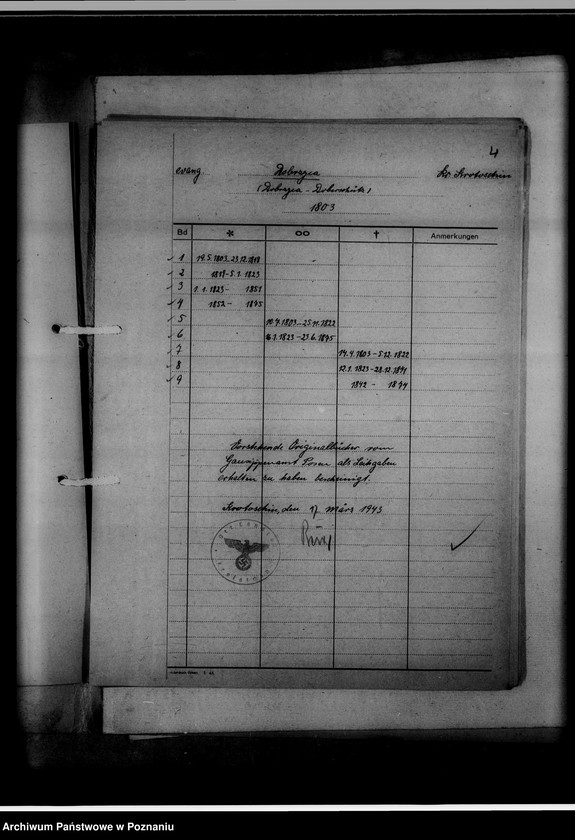 4
evang. Dobrzyca Kr. Krotoschin
(Dobrzyca - Doberschütz)
1803
Bd * oo † Anmerkungen
1 19.5.1803-23.12.1818
2 1818-5.1.1823
3 1.1.1823- 1851
4 1852 - 1875
5 10.4.1803-25.11.1822
6 1.1823-23.6.1875
7 14.4.1803-5.12.1822
8 12.1.1823-28.12.1841
9 1842 - 1874
Vorstehende Originalbücher vom
Gausippenamt Posen als Leihgaben
erhalten zu haben bescheinigt.
Krotoschin, den 17 März 1943
Archiwum Państwowe w Poznaniu